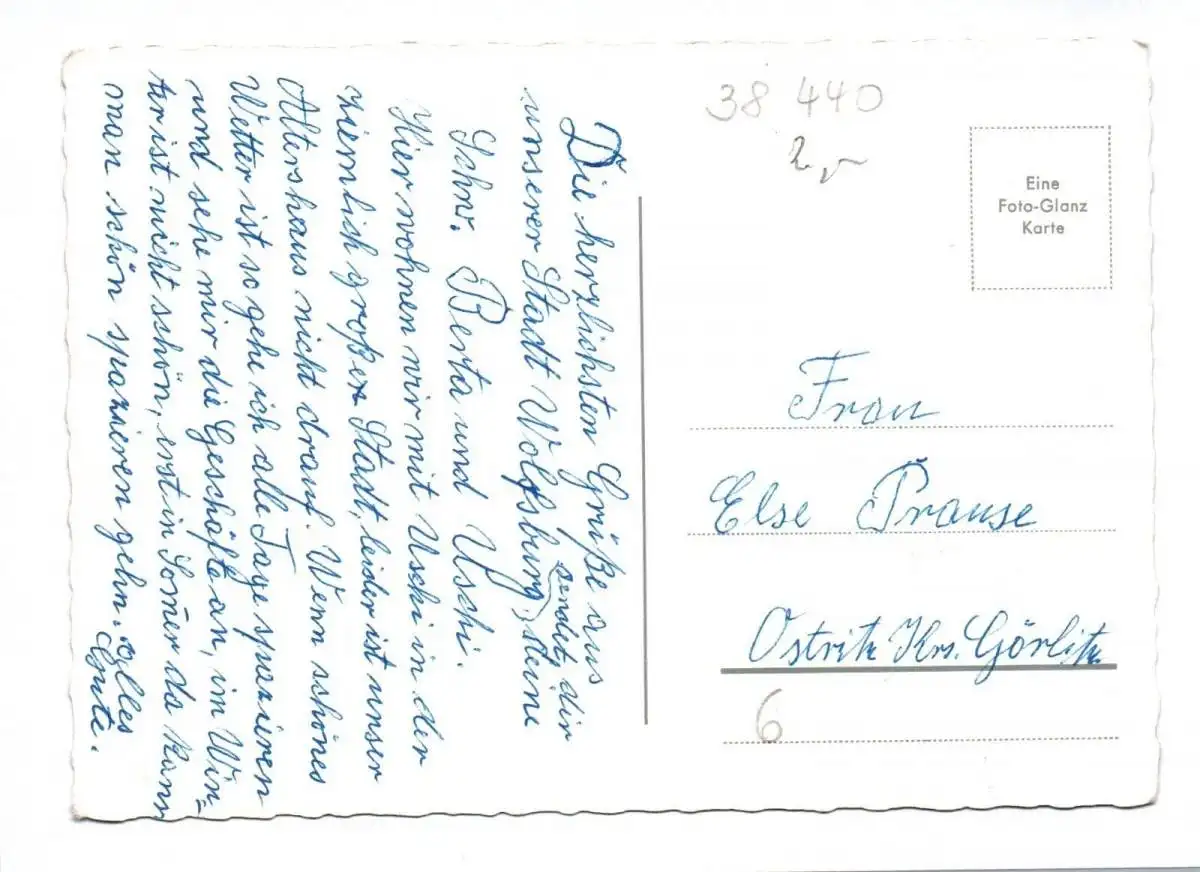 Die herzlichsten Grüße aus
unserer Stadt Wolfsburg, sendet dir deine
Schw. Berta und Uschi.
Hier wohnen wir mit Uschi in der
ziemlich großen Stadt, leider ist unser
Altershaus nicht drauf. Wenn schönes
Wetter ist so gehe ich alle Tage spazieren
und sehe mir die Geschäfte an, im Win=
ter ist nicht schön, erst in Som̄er da kann
man schön spazieren gehn. Alles
Gute.
38 440
2,-
Eine
Foto-Glanz
Karte
Frau
Else Prause
Ostritz Krs. Görlitz
6